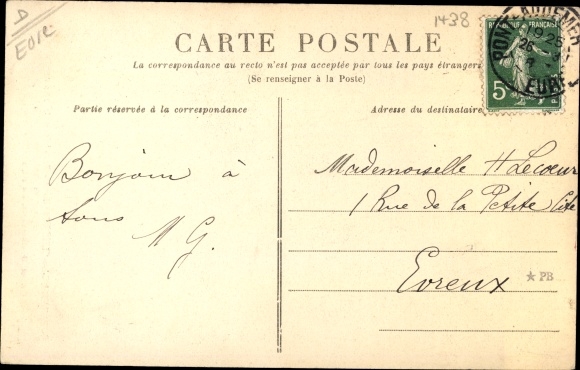 D
EOIE
1438
CARTE POSTALE
La correspondance au recto n'est pas acceptée par tous les pays étrangers
(Se renseigner à la Poste)
REPUBLIQUE FRANÇAISE
5
PONT-AUDEMER
19-25
26
EURE
Partie réservée à la correspondance
Adresse du destinataire
Bonjour à
tous
M G.
Mademoiselle H Lecoeur
1 Rue de la Petite Cité
Evreux
★ PB